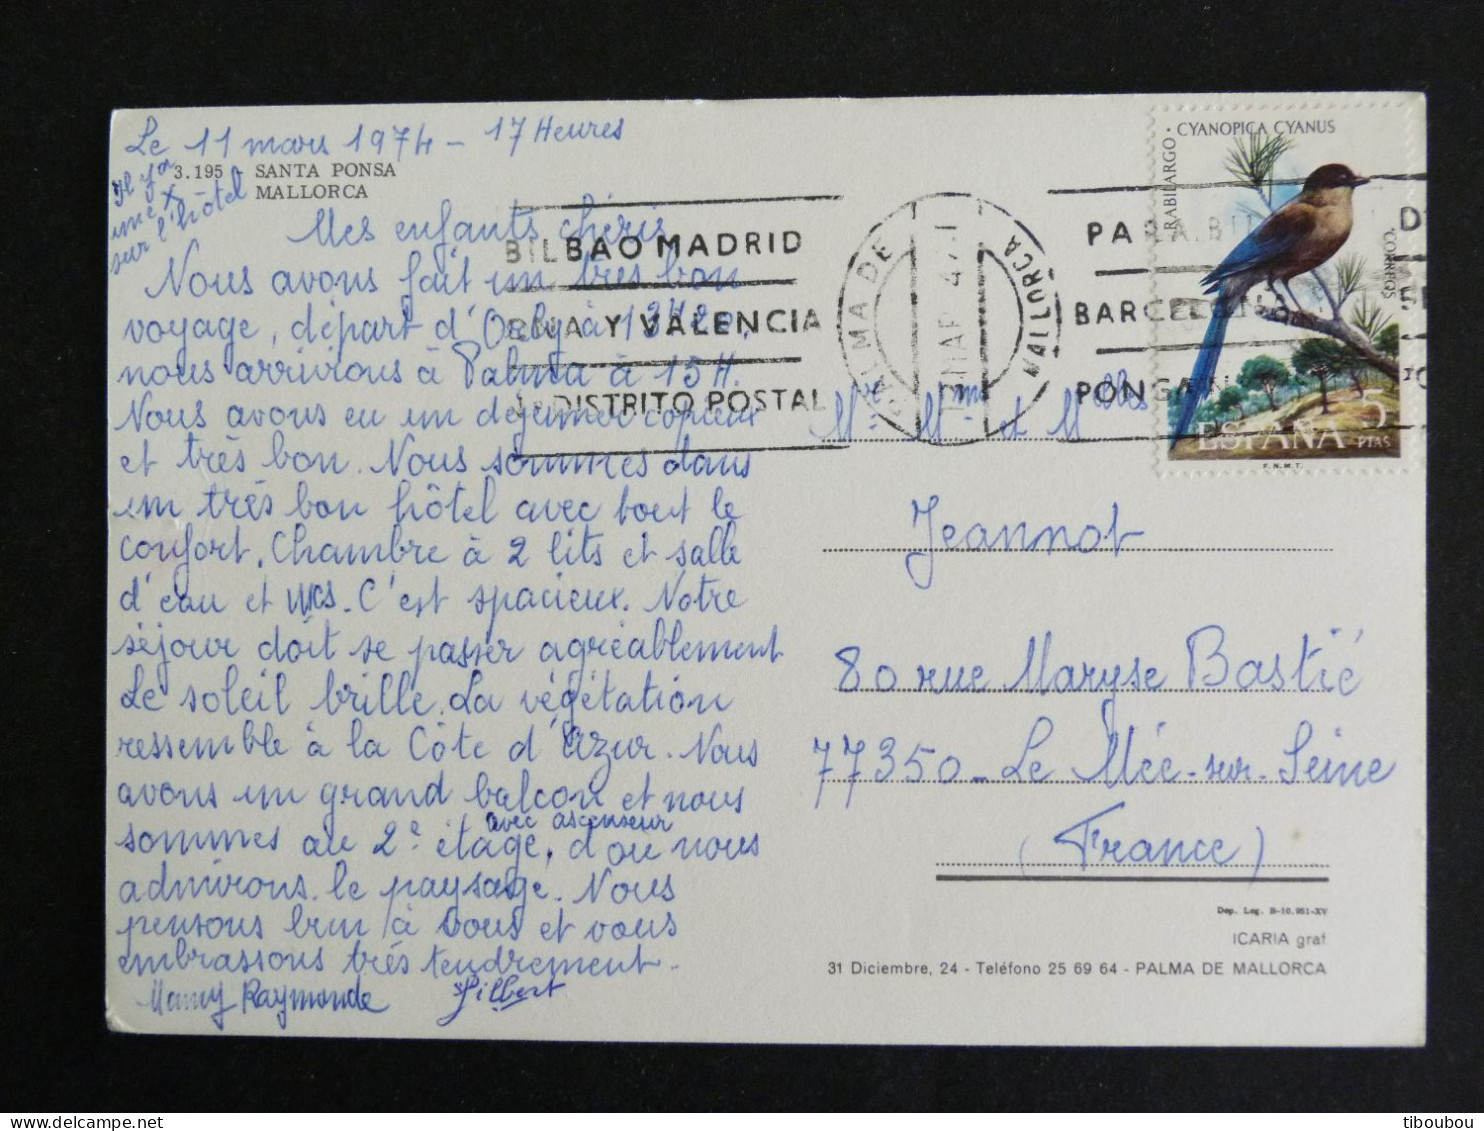 Le 11 mars 1974 - 17 Heures
3.195 - SANTA PONSA
MALLORCA
Il y a
une X
sur l'hôtel
Mes enfants chéris
Nous avons fait un très bon
voyage, départ d'Orly à 13H
nous arrivions à Palma à 15H.
Nous avons eu un déjeuner copieux
et très bon. Nous sommes dans
un très bon hôtel avec tout le
confort. Chambre à 2 lits et salle
d'eau et wcs. C'est spacieux. Notre
séjour doit se passer agréablement
Le soleil brille. La végétation
ressemble à la Côte d'Azur. Nous
avons un grand balcon et nous
avec ascenseur
sommes au 2e étage, d'où nous
admirons le paysage. Nous
pensons bien à vous et vous
embrassons très tendrement.
Mamy Raymonde Gilbert
BILBAO MADRID
Y VALENCIA
DISTRITO POSTAL
PALMA DE
MALLORCA
PARA BIL
BARCELONA
PONGA EN
RABILARGO · CYANOPICA CYANUS
CORREOS
ESPAÑA 5 PTAS
F.N.M.T.
Mr Mme et Melles
Jeannot
80 rue Maryse Bastié
77350 - Le Mée-sur-Seine
(France)
Dep. Leg. B-10.951-XV
ICARIA graf
31 Diciembre, 24 - Teléfono 25 69 64 - PALMA DE MALLORCA
tiboubou